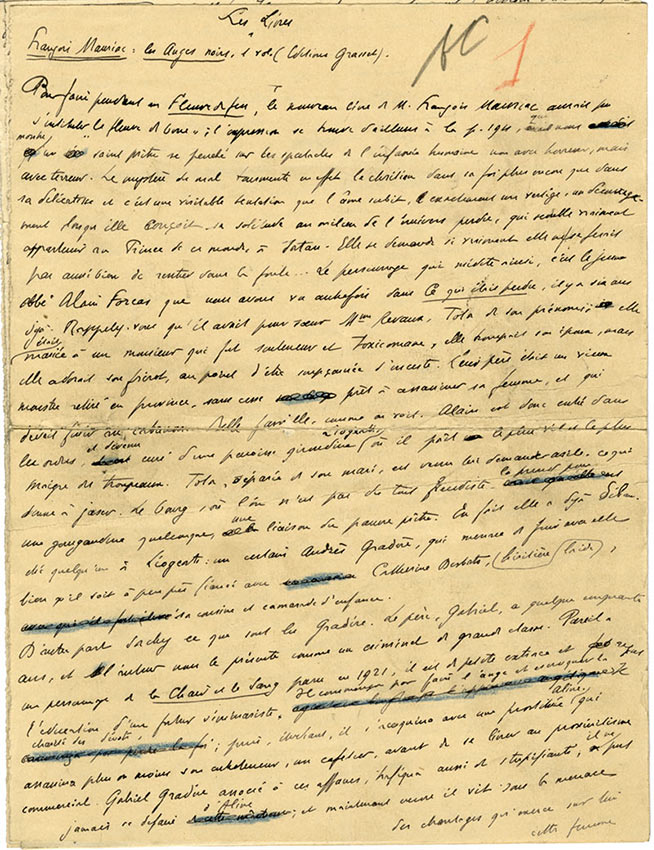 Les Livres
François Mauriac : les Anges noirs, 1 vol. (Editions Grasset).
AC 1
Pour faire pendant au Fleuve de feu, le nouveau livre de M. François Mauriac aurait pu
s'intituler le fleuve de boue ; l'expression se trouve d'ailleurs à la p. 194, qui nous
montre un saint prêtre se penché sur les spectacles de l'infamie humaine non avec horreur, mais
avec terreur. Le mystère du mal tourmente en effet le chrétien dans sa foi plus encore que dans
sa délicatesse et c'est une véritable tentation que l'âme subit, exactement un vertige, un décourage-
ment lorsqu'elle conçoit sa solitude au milieu de l'univers perdu, qui semble vraiment
appartenir au Prince de ce monde, à Satan. Elle se demande si vraiment elle ne ferait
pas aussi bien de rentrer dans la foule... Le personnage qui médite ainsi, c'est le jeune
abbé Alain Forcas que nous avons vu autrefois dans Ce qui était perdu, il y a six ans
déjà. Rappelez-vous qu'il avait pour sœur Mme Revaux, Tota de son prénom ; elle
était mariée à un monsieur qui fut souteneur et toxicomane, elle haïssait son époux, mais
elle adorait son frérot, au point d'être soupçonnée d'inceste. Leur père était un vieux
monstre retiré en province, sans cesse prêt à assassiner sa femme, et qui
devait finir au cabanon. Belle famille, comme on voit. Alain est donc entré dans
les ordres, et devenu curé d'une paroisse girondine (à Liogeats) où il paît le plus vil et le plus
maigre des troupeaux. Tota, séparée de son mari, est venue lui demander asile, ce qui
donne à jaser. Le bourg, où l'on n'est pas du tout la prend pour
une gourgandine quelconque, une liaison du pauvre prêtre. En fait elle a déjà
quelqu'un à Liogeats : un certain Andrès Gradère, qui menace de fuir avec elle
bien qu'il soit à peu près fiancé avec Catherine Desbats, (héritière laide),
sa cousine et camarade d'enfance.
D'autre part sachez ce que sont les Gradère. Le père, Gabriel, a quelque cinquante
ans, et l'auteur nous le présente comme un criminel de grande classe. Pareil à
un personnage de la Chair et le Sang paru en 1921, il est de petite extrace et reçut
l'éducation d'un futur séminariste. Il commença par faire l'ange et escroquer la
charité des dévots, ; puis, étudiant, il s'acoquina avec une prostituée (Aline) qui
assassina plus ou moins son entreteneur, un cafetier, avant de se livrer au proxénétisme
commercial. Gabriel Gradère associé à ces affaires, trafiqua aussi de stupéfiants, il ne put
jamais se défaire d'Aline ; et maintenant encore il vit sous la menace
des chantages qu'exerce sur lui
cette femme